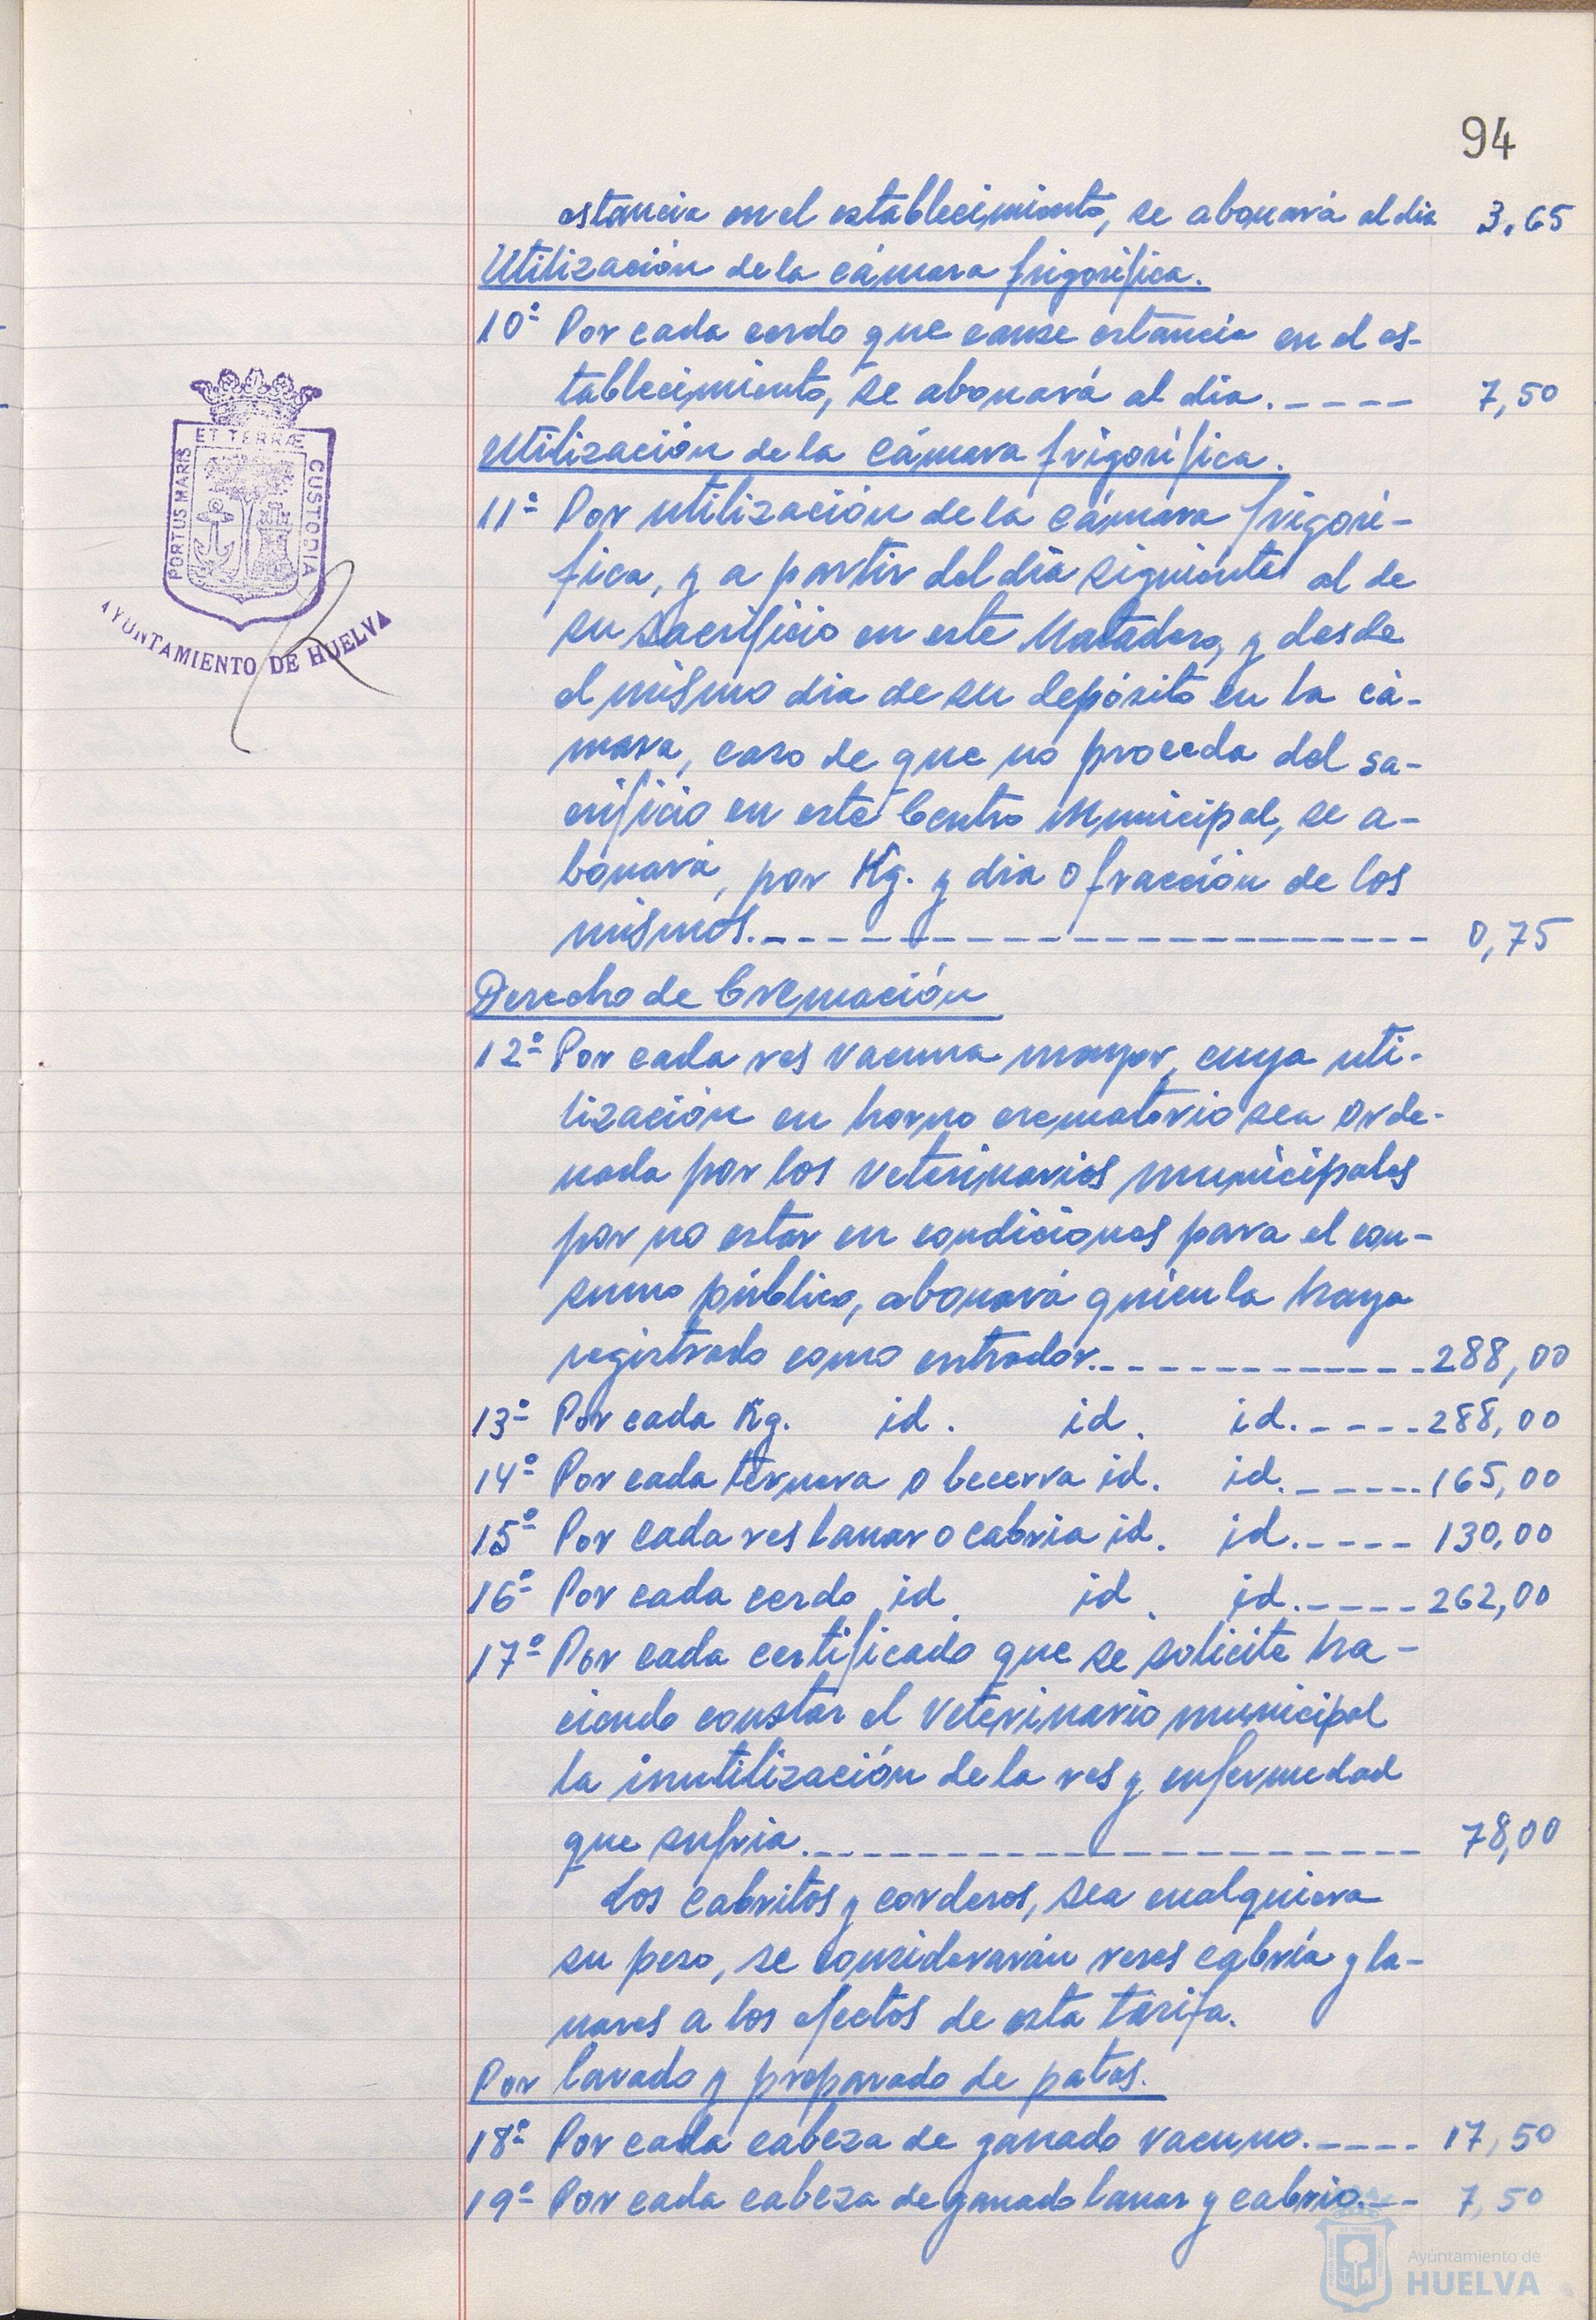 94
estancia en el establecimiento, se abonará al dia 3,65
Utilización de la cámara frigorífica.
10º Por cada cerdo que cause estancia en el es-
tablecimiento, se abonará al dia.---- 7,50
Utilización de la cámara frigorífica.
11º Por utilización de la cámara frigorí-
fica, y a partir del día siguiente al de
su sacrificio en este Matadero, y desde
el mismo dia de su depósito en la cá-
mara, caso de que no proceda del sa-
crificio en este Centro Municipal, se a-
bonará, por Kg. y dia o fracción de los
mismos.---------------------- 0,75
Derecho de Cremación
12º Por cada res vacuna mayor, cuya uti-
lización en horno crematorio sea orde-
nada por los veterinarios municipales
por no estar en condiciones para el con-
sumo público, abonará quien la haya
registrado como entrador.----------- 288,00
13º Por cada Kg. id. id. id.---- 288,00
14º Por cada ternera o becerra id. id.----- 165,00
15º Por cada res lanar o cabria id. id.---- 130,00
16º Por cada cerdo id. id. id.---- 262,00
17º Por cada certificado que se solicite ha-
ciendo constar el Veterinario municipal
la inutilización de la res y enfermedad
que sufria.-------------------- 78,00
Los cabritos y corderos, sea cualquiera
su peso, se considerarán reses cabría y la-
nares a los efectos de esta tarifa.
Por lavado y preparado de patas.
18º Por cada cabeza de ganado vacuno.---- 17,50
19º Por cada cabeza de ganado lanar y cabrio.-- 7,50
PORTUS MARIS ET TERRÆ CUSTODIA
AYUNTAMIENTO DE HUELVA
Ayuntamiento de
HUELVA